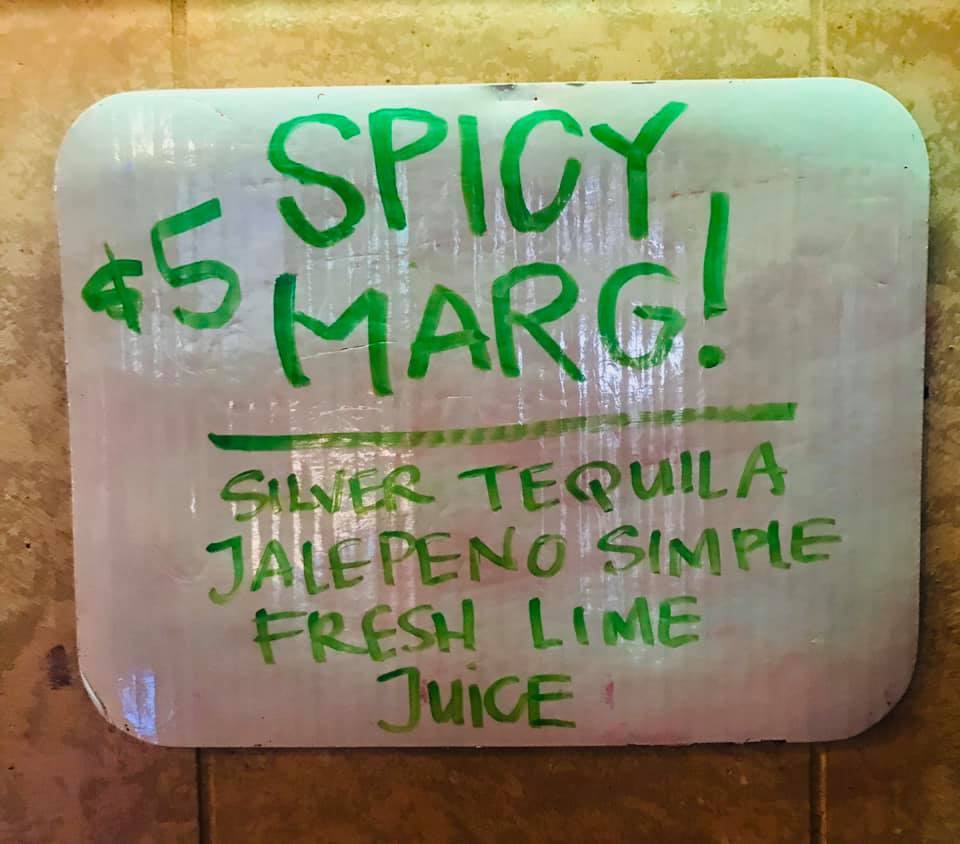 SPICY
$5 MARG!
SILVER TEQUILA
JALEPENO SIMPLE
FRESH LIME
JUICE